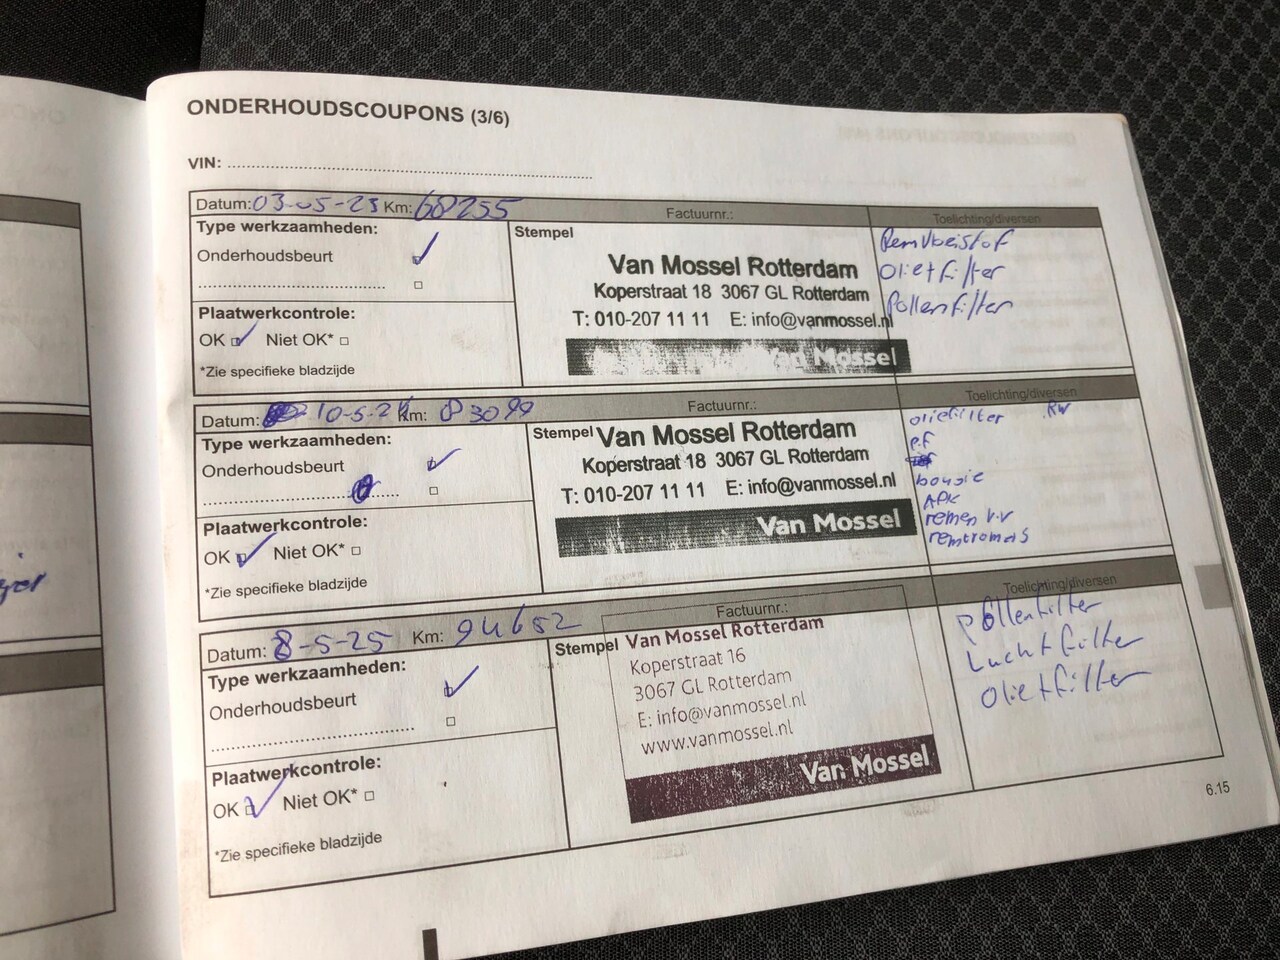 ONDERHOUDSCOUPONS (3/6)
VIN:
Datum: 03-05-23 Km: 68255 Factuurnr.: Toelichting/diversen
Type werkzaamheden:
Onderhoudsbeurt
Plaatwerkcontrole:
OK Niet OK*
*Zie specifieke bladzijde
Stempel
Van Mossel Rotterdam
Koperstraat 18 3067 GL Rotterdam
T: 010-207 11 11 E: info@vanmossel.nl
Van Mossel
Remvloeistof
Olietfilter
Pollenfilter
Datum: 10-5-24 Km: 83099 Factuurnr.: Toelichting/diversen
Type werkzaamheden:
Onderhoudsbeurt
Plaatwerkcontrole:
OK Niet OK*
*Zie specifieke bladzijde
Stempel
Van Mossel Rotterdam
Koperstraat 18 3067 GL Rotterdam
T: 010-207 11 11 E: info@vanmossel.nl
Van Mossel
oliefilter RW
P.F
bougie
APK
remen v.v
remtromels
Datum: 8-5-25 Km: 94652 Factuurnr.: Toelichting/diversen
Type werkzaamheden:
Onderhoudsbeurt
Plaatwerkcontrole:
OK Niet OK*
*Zie specifieke bladzijde
Stempel
Van Mossel Rotterdam
Koperstraat 16
3067 GL Rotterdam
E: info@vanmossel.nl
www.vanmossel.nl
Van Mossel
pollenfilter
Luchtfilter
Olietfilter
6.15